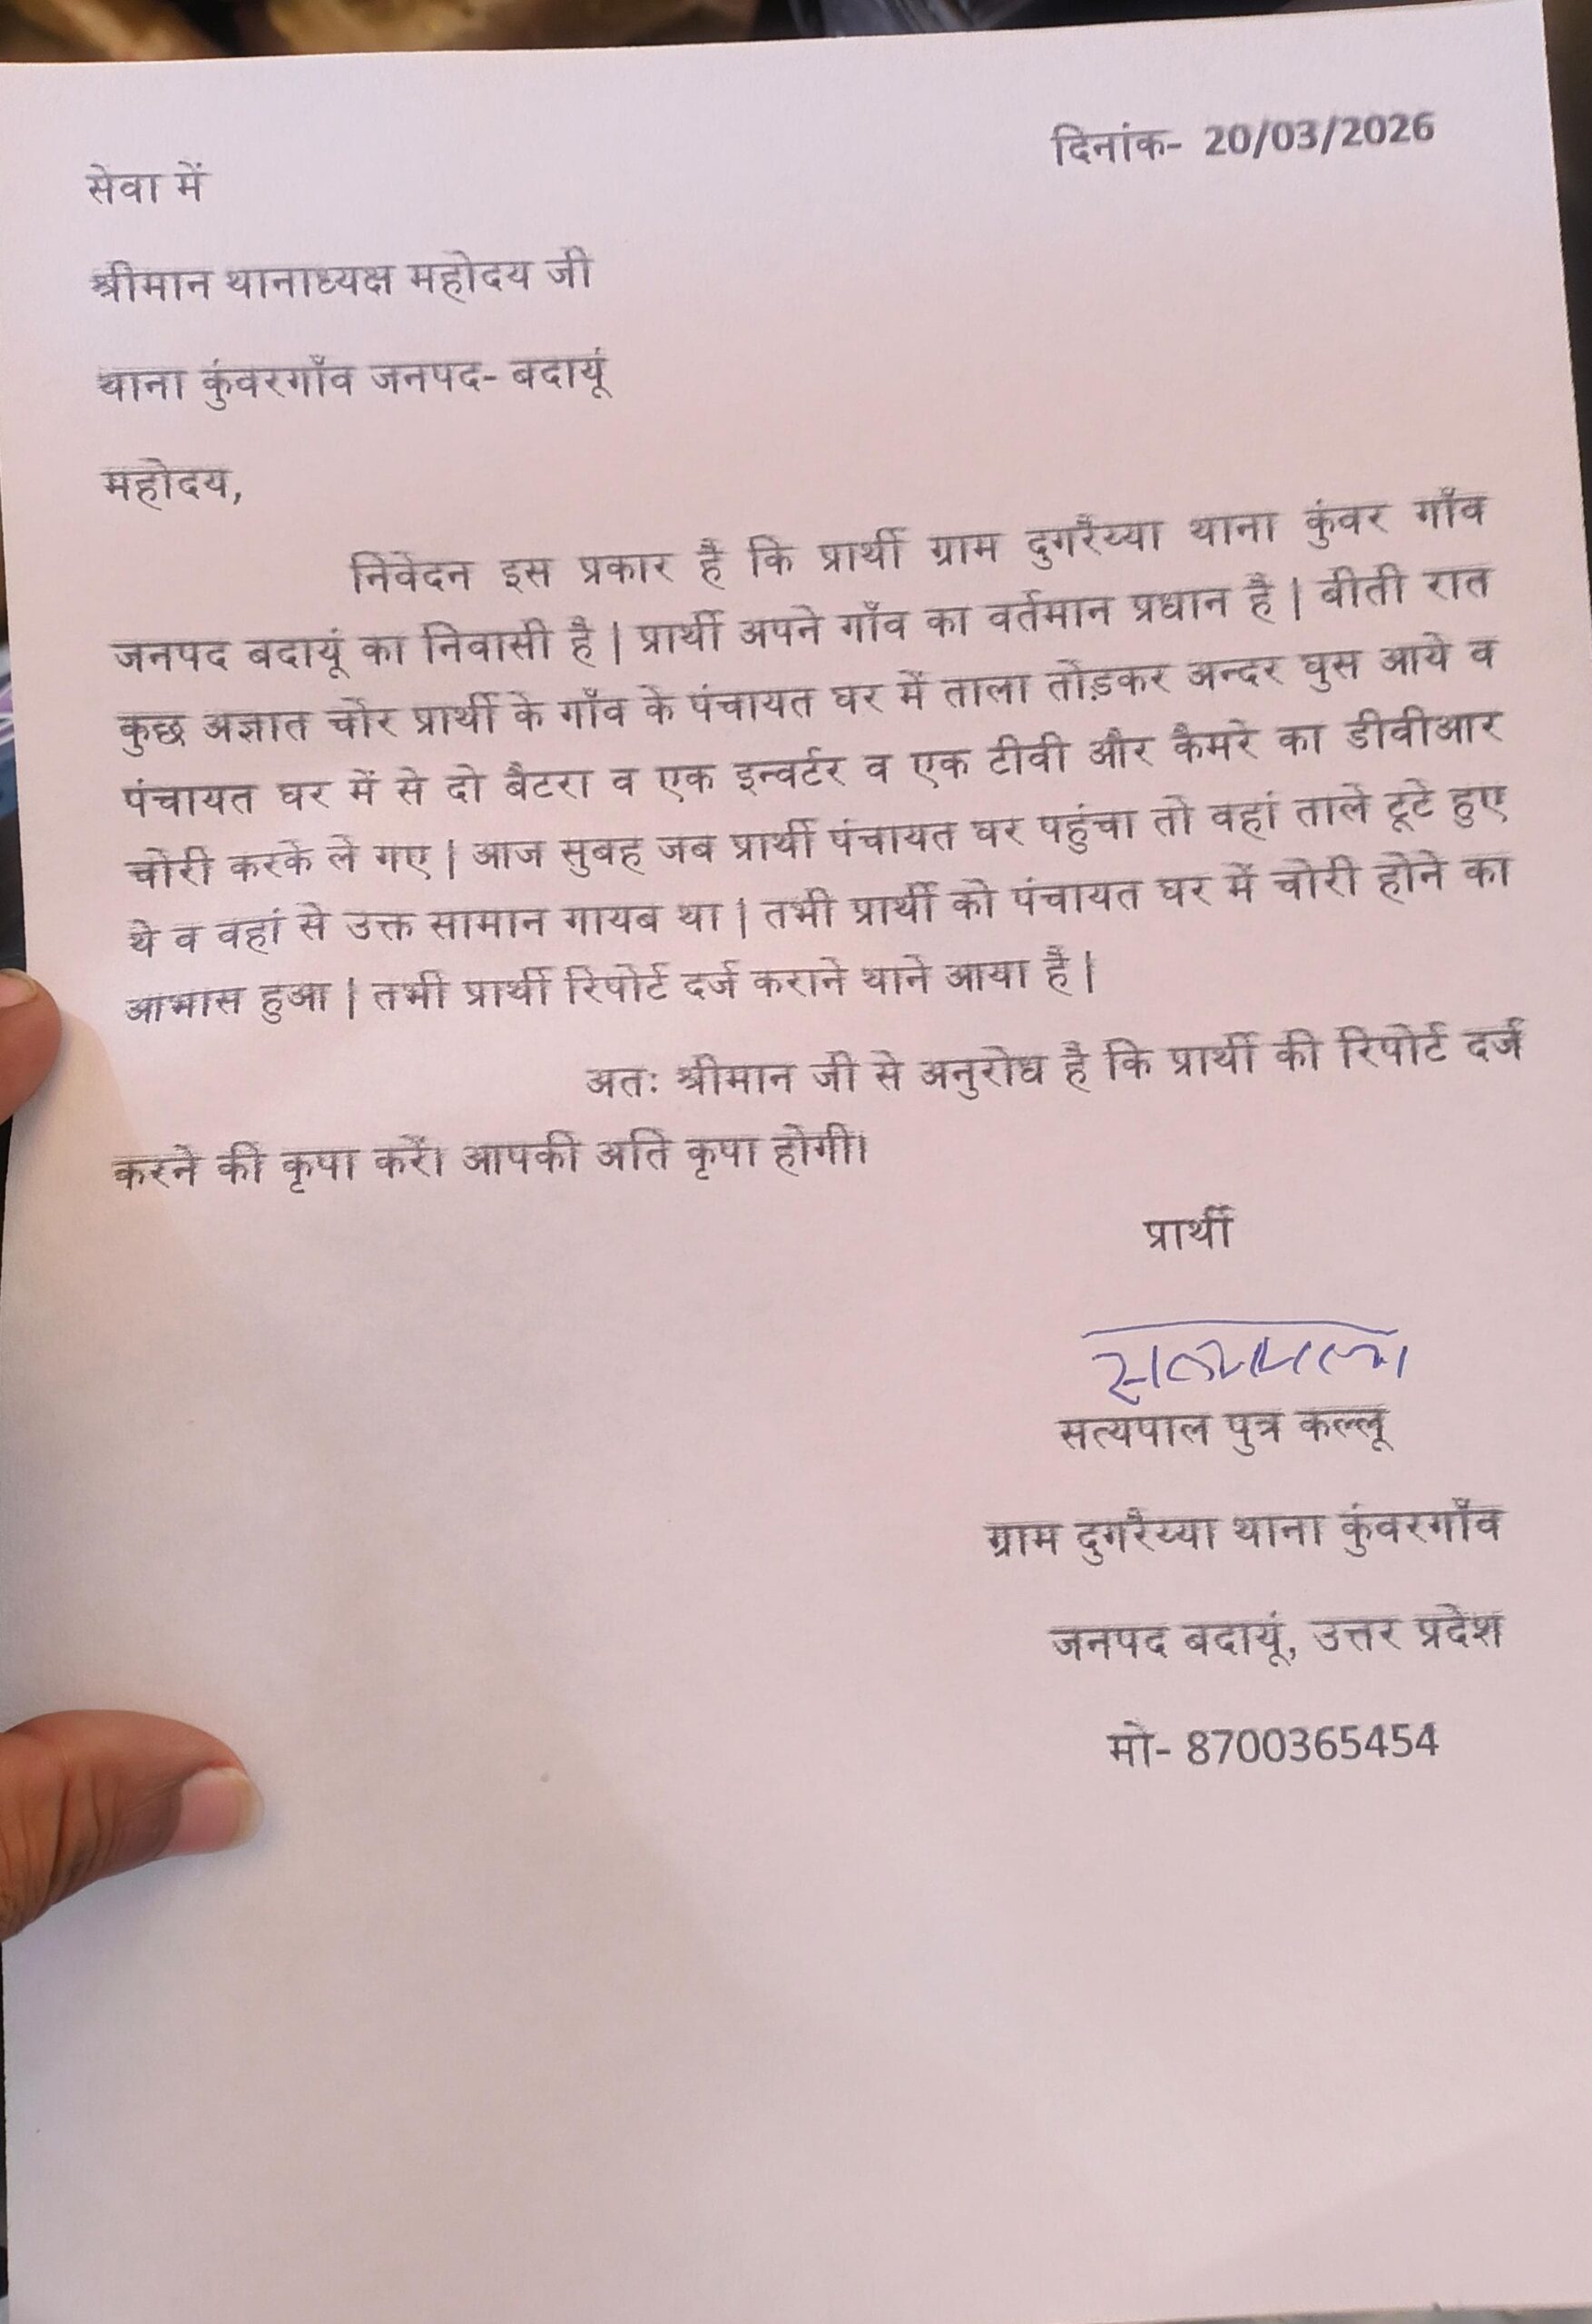 दिनांक- 20/03/2026
सेवा में
श्रीमान थानाध्यक्ष महोदय जी
थाना कुंवरगाँव जनपद- बदायूं
महोदय,
निवेदन इस प्रकार है कि प्रार्थी ग्राम दुगरैय्या थाना कुंवर गाँव
जनपद बदायूं का निवासी है | प्रार्थी अपने गाँव का वर्तमान प्रधान है | बीती रात
कुछ अज्ञात चोर प्रार्थी के गाँव के पंचायत घर में ताला तोड़कर अन्दर घुस आये व
पंचायत घर में से दो बैटरा व एक इन्वर्टर व एक टीवी और कैमरे का डीवीआर
चोरी करके ले गए | आज सुबह जब प्रार्थी पंचायत घर पहुंचा तो वहां ताले टूटे हुए
थे व वहां से उक्त सामान गायब था | तभी प्रार्थी को पंचायत घर में चोरी होने का
आभास हुआ | तभी प्रार्थी रिपोर्ट दर्ज कराने थाने आया है |
अतः श्रीमान जी से अनुरोध है कि प्रार्थी की रिपोर्ट दर्ज
करने की कृपा करें। आपकी अति कृपा होगी।
प्रार्थी
सत्यपाल
सत्यपाल पुत्र कल्लू
ग्राम दुगरैय्या थाना कुंवरगाँव
जनपद बदायूं, उत्तर प्रदेश
मो- 8700365454